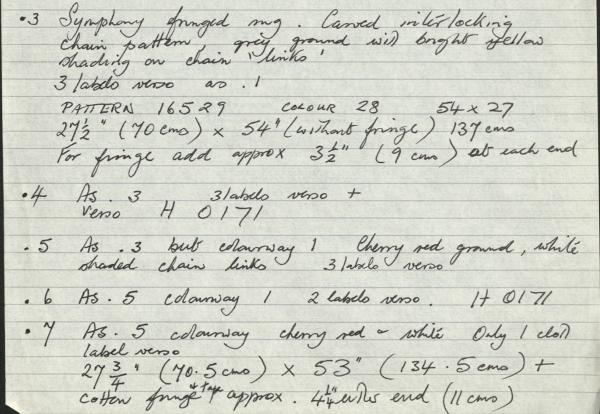 .3 Symphony fringed rug. Carved interlocking
chain pattern, grey ground with bright yellow
shading on chain 'links'
3 labels verso as .1
PATTERN 16529 COLOUR 28 54 x 27
27 1/2" (70 cms) x 54" (without fringe) 137 cms
For fringe add approx 3 1/2" (9 cms) at each end
.4 As .3 3 labels verso +
verso H 0171
.5 As .3 but colourway 1 Cherry red ground, white
shaded chain links 3 labels verso
.6 As .5 colourway 1 2 labels verso. H 0171
.7 As .5 colourway cherry red - white Only 1 cloth
label verso
27 3/4" (70.5 cms) x 53" (134.5 cms) +
cotton fringe + tape approx. 4 1/4" either end (11 cms)